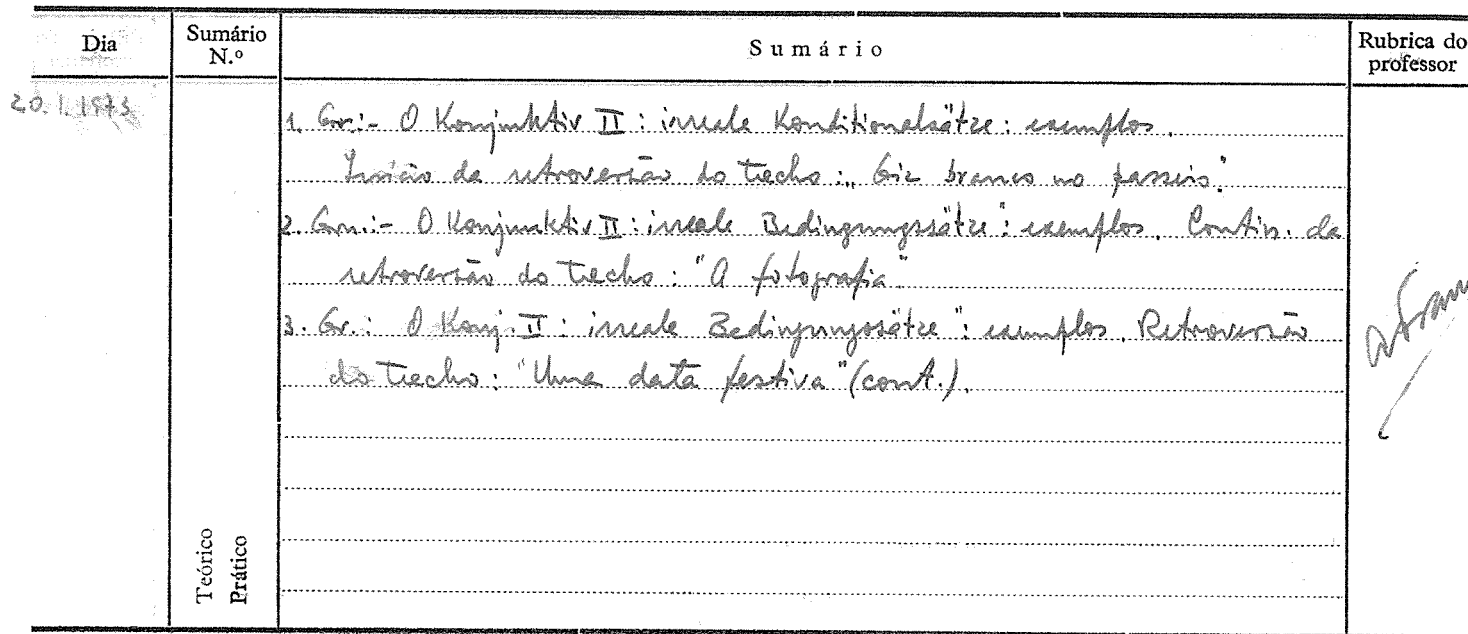 Dia
Sumário N.º
Sumário
Rubrica do professor
20.1.1973
1. Gr.:- O Konjunktiv II : irreale Konditionalsätze : exemplos.
Início da retroversão do trecho : „Giz branco no passeio".
2. Gm.:- O Konjunktiv II : irreale Bedingungssätze" : exemplos. Contin. da
retroversão do trecho : "A fotografia"
3. Gr.: O Konj. II : irreale Bedingungssätze" : exemplos. Retroversão
do trecho : "Uma data festiva" (cont.).
Teórico
Prático